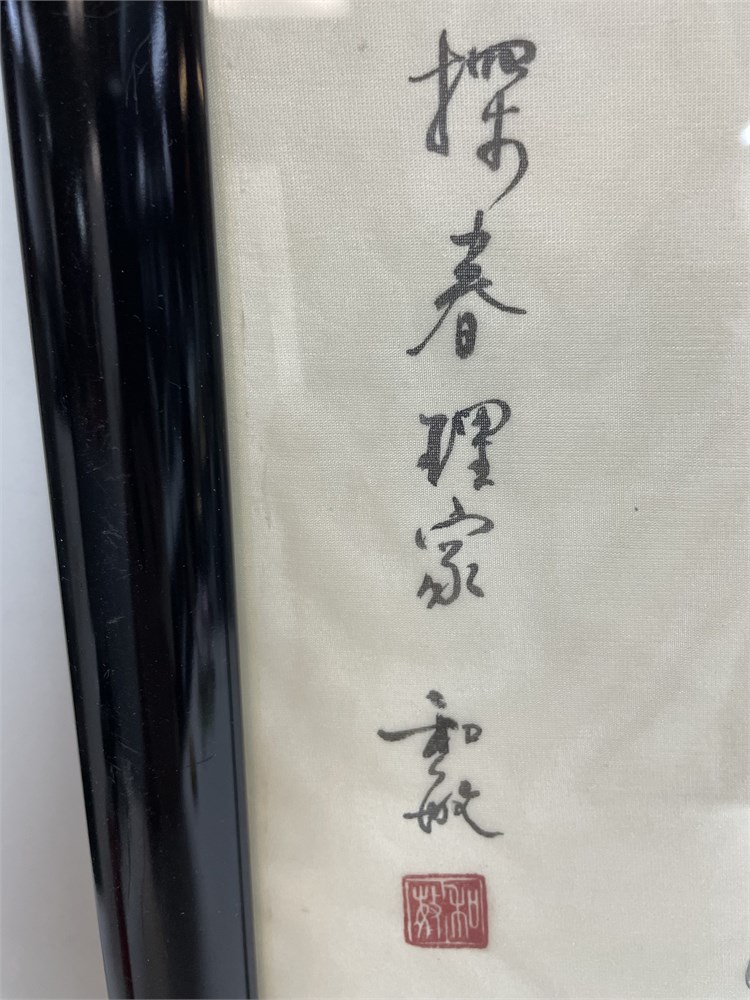 探春理家 和敏
和敏